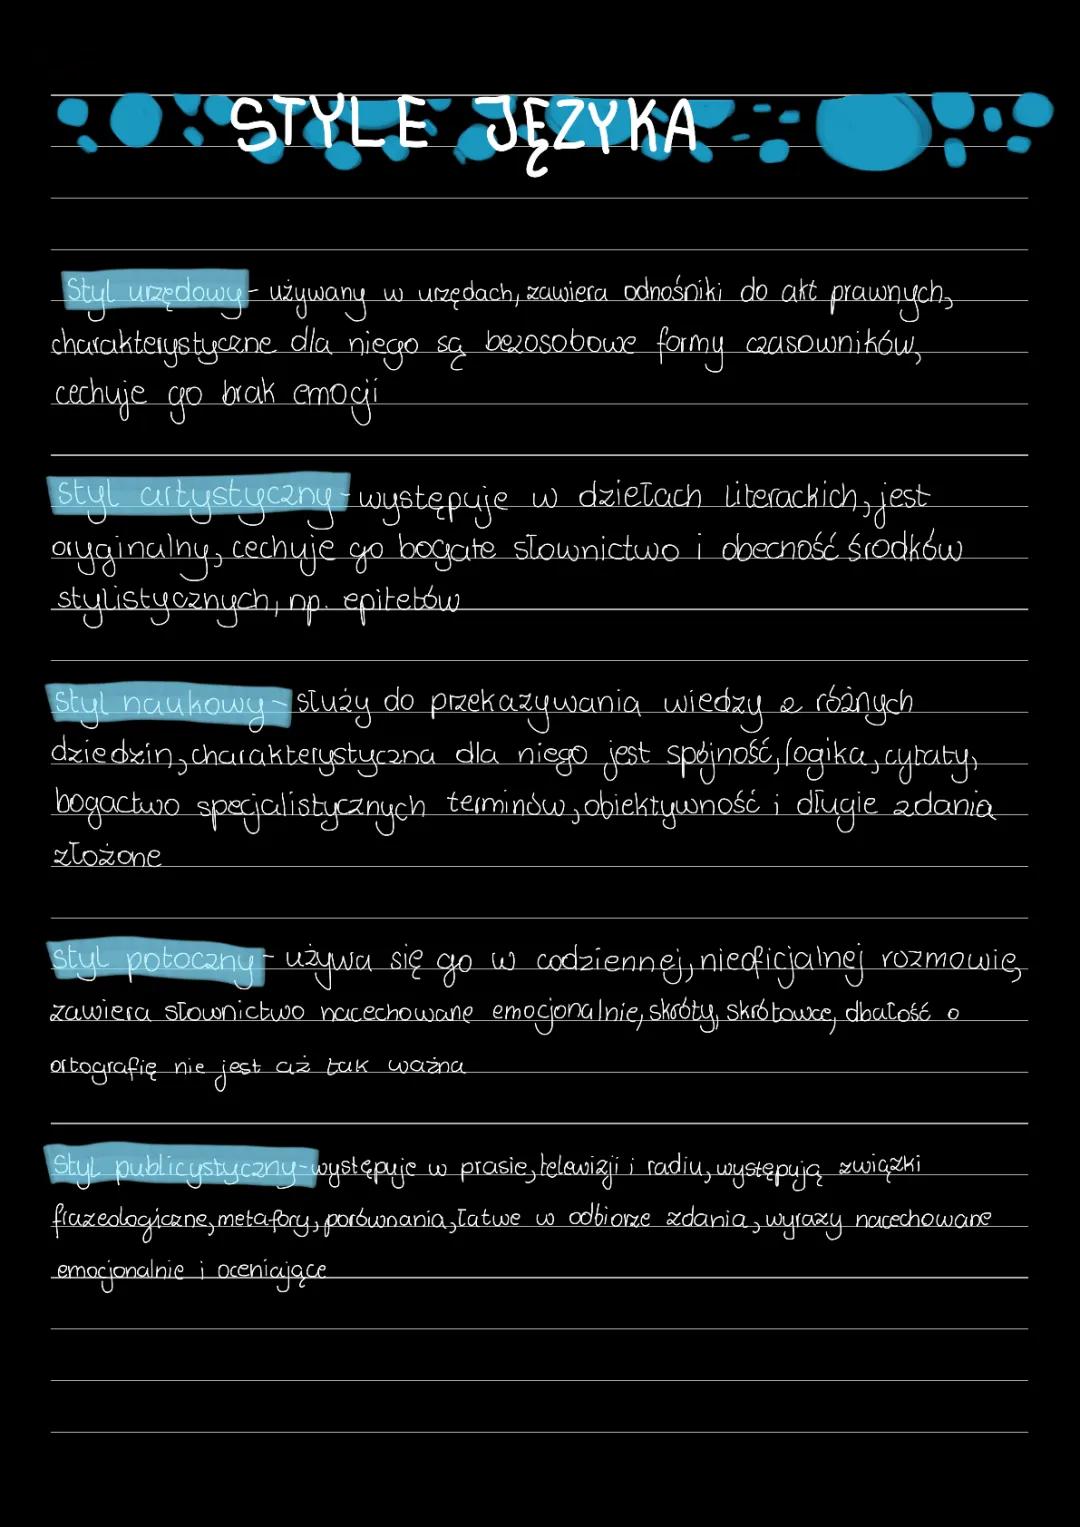 STYLE JĘZYKA
Styl urzędowy - używany w urzędach, zawiera odnośniki do akt prawnych,
charakterystyczne dla niego są bezosobowe formy czasowników,
cechuje go brak emocji
Styl artystyczny - występuje w dziełach literackich, jest
oryginalny, cechuje go bogate słownictwo i obecność środków
stylistycznych, np. epitetów
Styl naukowy - służy do przekazywania wiedzy z różnych
dziedzin, charakterystyczna dla niego jest spójność, logika, cytaty,
bogactwo specjalistycznych terminów, obiektywność i długie zdania
złożone
Styl potoczny - używa się go w codziennej, nieoficjalnej rozmowie,
zawiera słownictwo nacechowane emocjonalnie, skróty, skrótowce, dbałość o
ortografię nie jest aż tak ważna
Styl publicystyczny - występuje w prasie, telewizji i radiu, występują związki
frazeologiczne, metafory, porównania, łatwe w odbiorze zdania, wyrazy nacechowane
emocjonalnie i oceniające